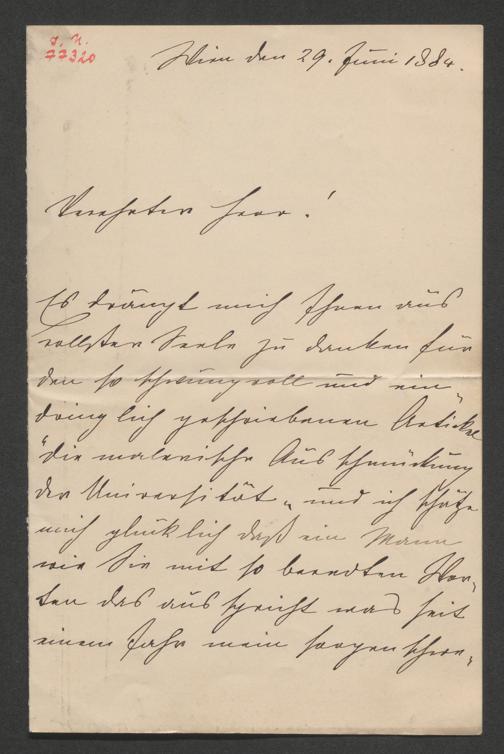 J. N.
77320
Wien den 29. Juni 1884.
Verehrter Herr!
Es drängt mich Ihnen aus
vollster Seele zu danken für
den so schwungvoll und ein
dringlich geschriebenen Artikel
"die malerische Ausschmückung
der Universität" und ich schätze
mich glücklich daß ein Mann
wie Sie mit so beredten Wor-
ten das ausspricht was seit
einem Jahr mein sorgenschwe-